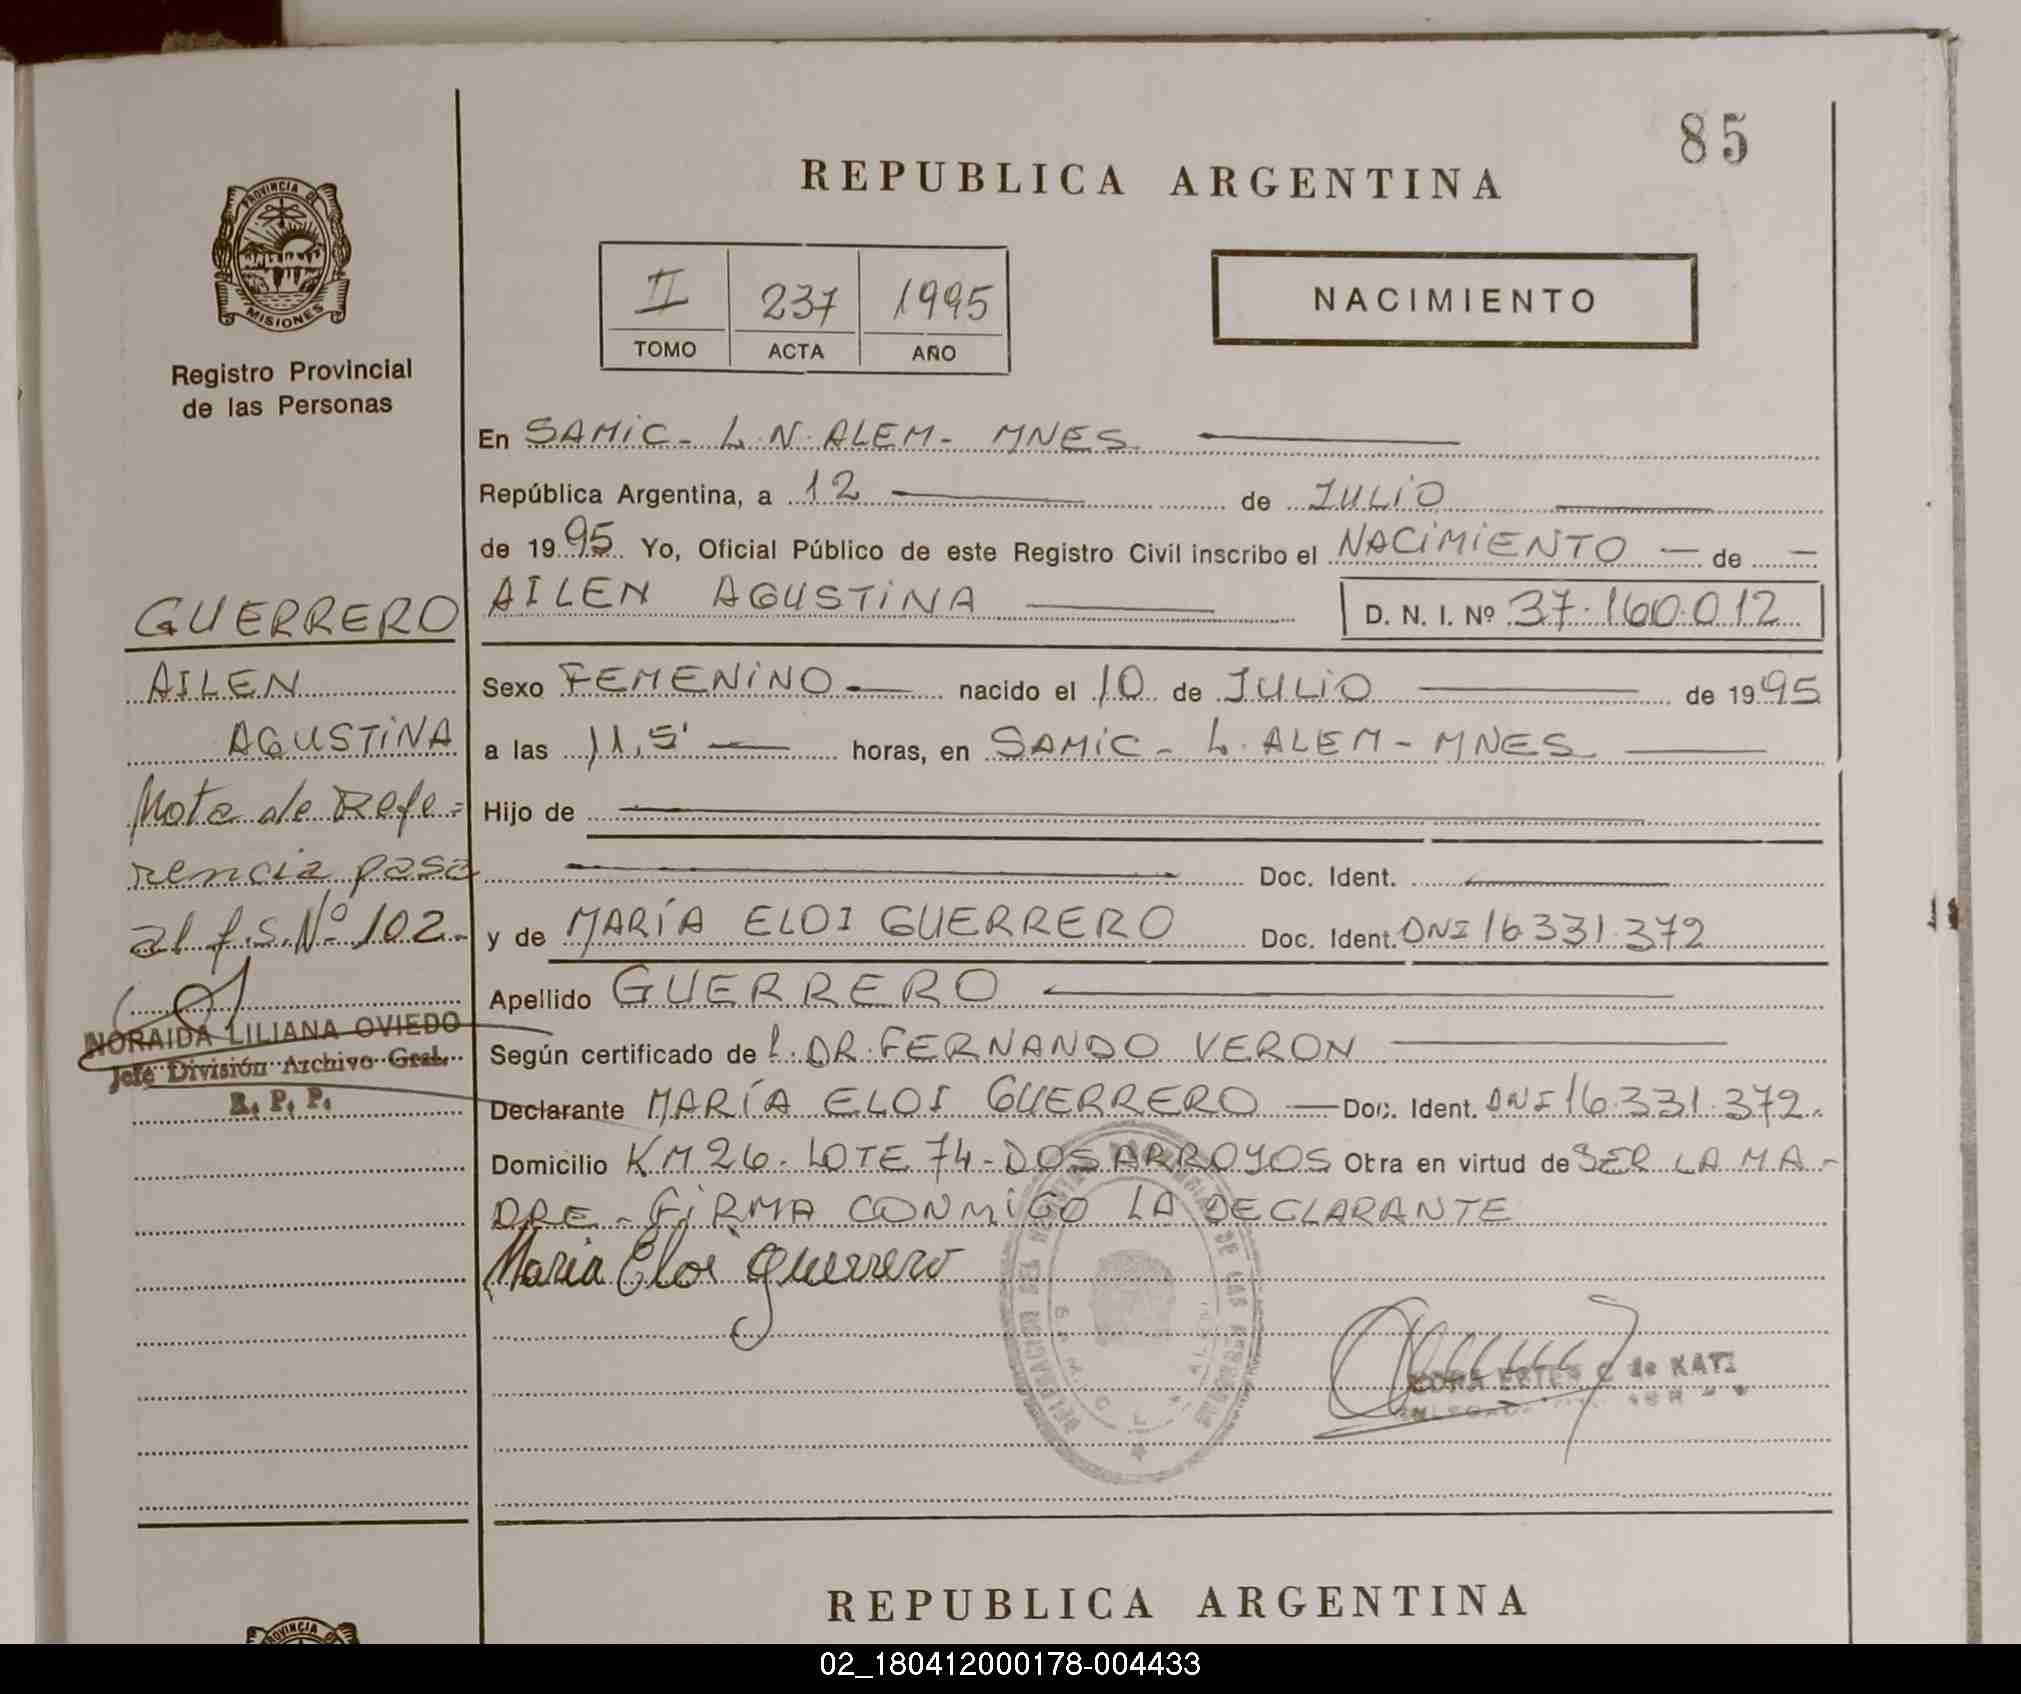 85
REPUBLICA ARGENTINA
PROVINCIA DE
MISIONES
II 237 1995
TOMO ACTA AÑO
NACIMIENTO
Registro Provincial
de las Personas
En SAMIC - L.N. ALEM - MNES
República Argentina, a 12 de JULIO
de 1995 Yo, Oficial Público de este Registro Civil inscribo el NACIMIENTO — de —
AILEN AGUSTINA D. N. I. Nº 37.160.012
GUERRERO
AILEN
AGUSTINA
Nota de Refe=
rencia pasa
al f.s. Nº 102.-
NORAIDA LILIANA OVIEDO
Jefe División Archivo Gral.
R. P. P.
Sexo FEMENINO — nacido el 10 de JULIO de 1995
a las 11,5' — horas, en SAMIC - L. ALEM - MNES
Hijo de
Doc. Ident.
y de MARÍA ELOI GUERRERO Doc. Ident. DNI 16.331.372
Apellido GUERRERO
Según certificado de l. DR. FERNANDO VERON
Declarante MARÍA ELOI GUERRERO — Doc. Ident. DNI 16.331.372.
Domicilio KM 26 - LOTE 74 - DOS ARROYOS Obra en virtud de SER LA MA-
DRE - FIRMA CONMIGO LA DECLARANTE
Maria Eloi Guerrero
de KATZ
REPUBLICA ARGENTINA
PROVINCIA DE
02_180412000178-004433